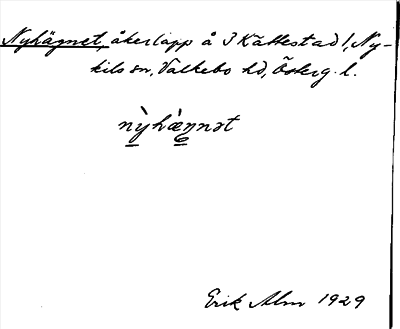 Nyhägnet, åkerlapp å 3 Kättestad 1, Ny-
kils sn, Valkebo hd, Österg. l.
nỳhæ̀ŋnət
Erik Alm 1929